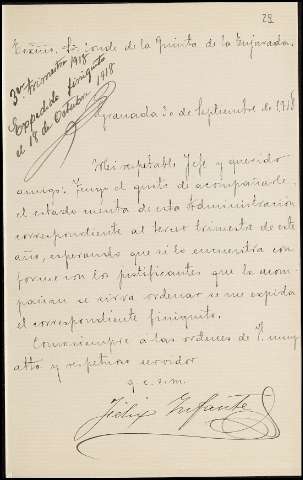 28
Excmo. Sr. Conde de la Quinta de la Enjarada.
3er trimestre 1918
Expedido finiquito
el 18 de Octubre 1918
Granada 30 de Septiembre de 1918
Mi respetable Jefe y querido
amigo: Tengo el gusto de acompañarle
el estado cuenta de esta Administracion
correspondiente al tercer trimestre de este
año, esperando que si lo encuentra con
forme con los justificantes que le acom-
pañan se sirva ordenar se me expida
el correspondiente finiquito.
Como siempre a las ordenes de V. muy
atto y respetuoso servidor
q. e. s. m.
Felix Infante